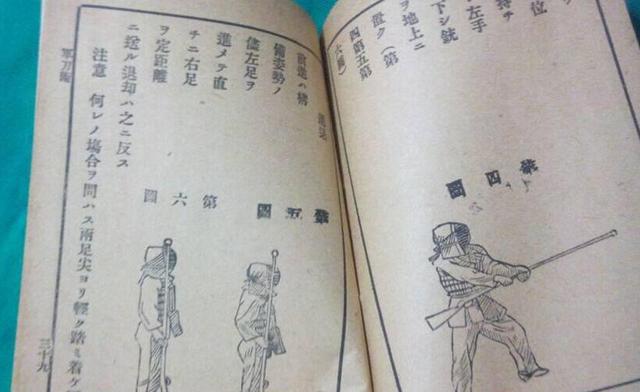 位
持チ
左手
下シ銃
ヲ地上ニ
置ク(第
五第
六圖)
第四圖
前進ハ構
備姿勢ノ
儘左足ヲ
進メテ直
チニ右足
ヲ定距離
ニ送ル退却ハ之ニ反ス
注意 何レノ塲合ヲ問ハス兩足尖ヨリ輕ク踏ミ着ケ
第五圖
第六圖
軍刀術
三十九